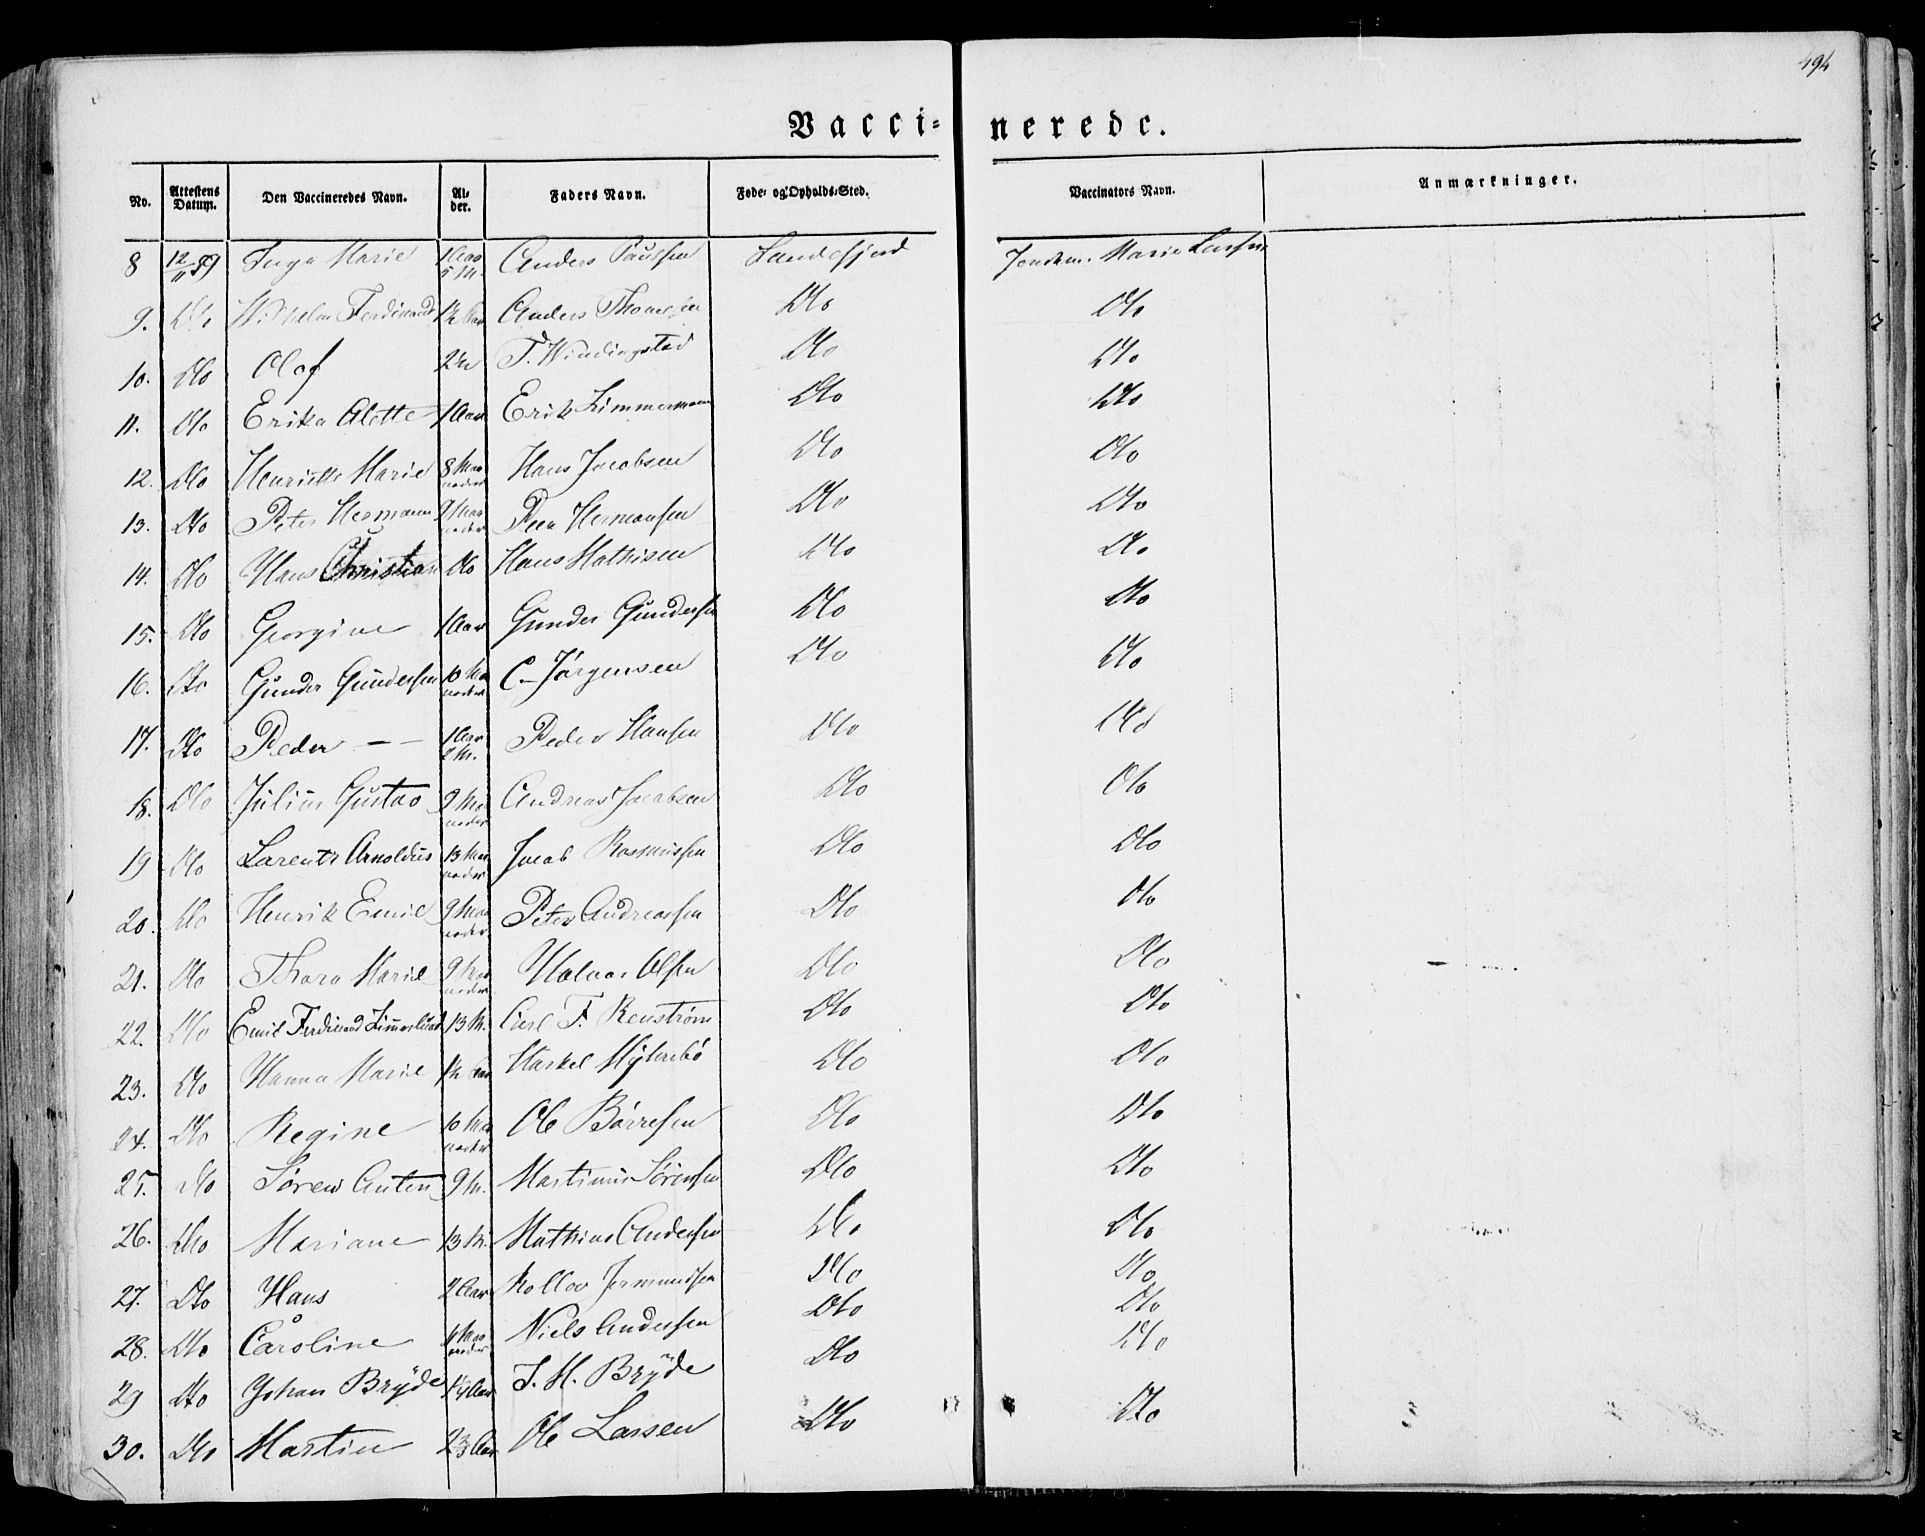 494
Vacci- nerede.
No. Attestens Datum. Den Vaccineredes Navn. Al- der. Faders Navn. Føde- og Opholds-Sted. Vaccinators Navn. Anmærkninger.
8 12/11 59 Inga Marie 1 Aar 5 M. Anders Paulsen Sandefjord Jordem. Marie Larsen
9. Dto Wilhelm Ferdinand 1½ Aar Anders Thomesen Dto Dto
10. Dto Olaf T. Windingstad Dto Dto
11. Dto Erika Alette 1 Aar Erik Zimmermann Dto Dto
12. Dto Henriette Marie 8 Maaneder Hans Jacobsen Dto Dto
13. Dto Peter Hermann 9 Maaneder Peer Hermansen Dto Dto
14. Dto Hans Christian Dto Hans Mathisen Dto Dto
15. Dto Georgine 1 Aar Gunder Gundersen Dto Dto
16. Dto Gunder Gundersen 10 Maaneder C. Jörgensen Dto Dto
17. Dto Peder — — 1 Aar 2 M. Peder Hansen Dto Dto
18. Dto Julius Gustav 9 Maaneder Andreas Jacobsen Dto Dto
19 Dto Larentz Arnoldus 13 Maaneder Jacob Rasmussen Dto Dto
20. Dto Henrik Emil 9 Maaneder Peter Andreassen Dto Dto
21. Dto Thora Marie 9 Maaneder Halvor Olsen Dto Dto
22. Dto Emil Ferdinand 13 M. Carl F. Renström Dto Dto
23. Dto Hanna Marie 1½ Aar Haskel Myhrebö Dto Dto
24. Dto Regine 10 Maaneder Ole Börresen Dto Dto
25. Dto Sören Anton 9 M. Martinius Sörensen Dto Dto
26. Dto Mariane 13 M. Mathias Andersen Dto Dto
27. Dto Hans 2 Aar Rollov Jermundsen Dto Dto
28. Dto Caroline Maaneder Niels Andersen Dto Dto
29 Dto Johan Bryde Aar J. M. Bryde Dto Dto
30. Dto Martin Aar Ole Larsen Dto Dto